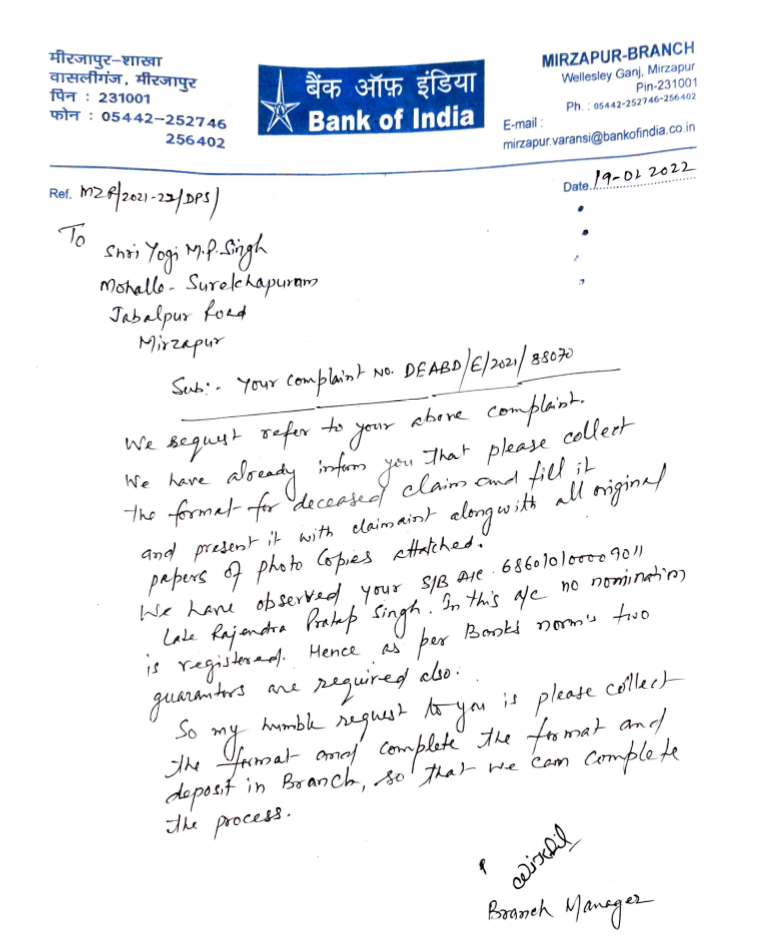 मीरजापुर–शाखा
वासलीगंज, मीरजापुर
पिन : 231001
फोन : 05442–252746
256402
बैंक ऑफ़ इंडिया
Bank of India
MIRZAPUR-BRANCH
Wellesley Ganj, Mirzapur
Pin-231001
Ph. : 05442-252746-256402
E-mail :
mirzapur.varansi@bankofindia.co.in
Ref. MZP/2021-22/DPS/
Date. 19-01 2022
To
Shri Yogi M.P. Singh
Mohalla - Surekhapuram
Jabalpur Road
Mirzapur
Sub:- Your complaint No. DEABD/E/2021/88070
We request refer to your above complaint.
We have already inform you that please collect
the format for deceased claim and fill it
and present it with claimaint alongwith all original
papers of photo copies attatched.
We have observed your S/B A/c. 686010100009011
Late Rajendra Pratap Singh. In this a/c no nomination
is registered. Hence as per Banks norm's two
guarantors are required also.
So my humble request to you is please collect
the format and complete the format and
deposit in Branch, so that we can complete
the process.
Branch Manager